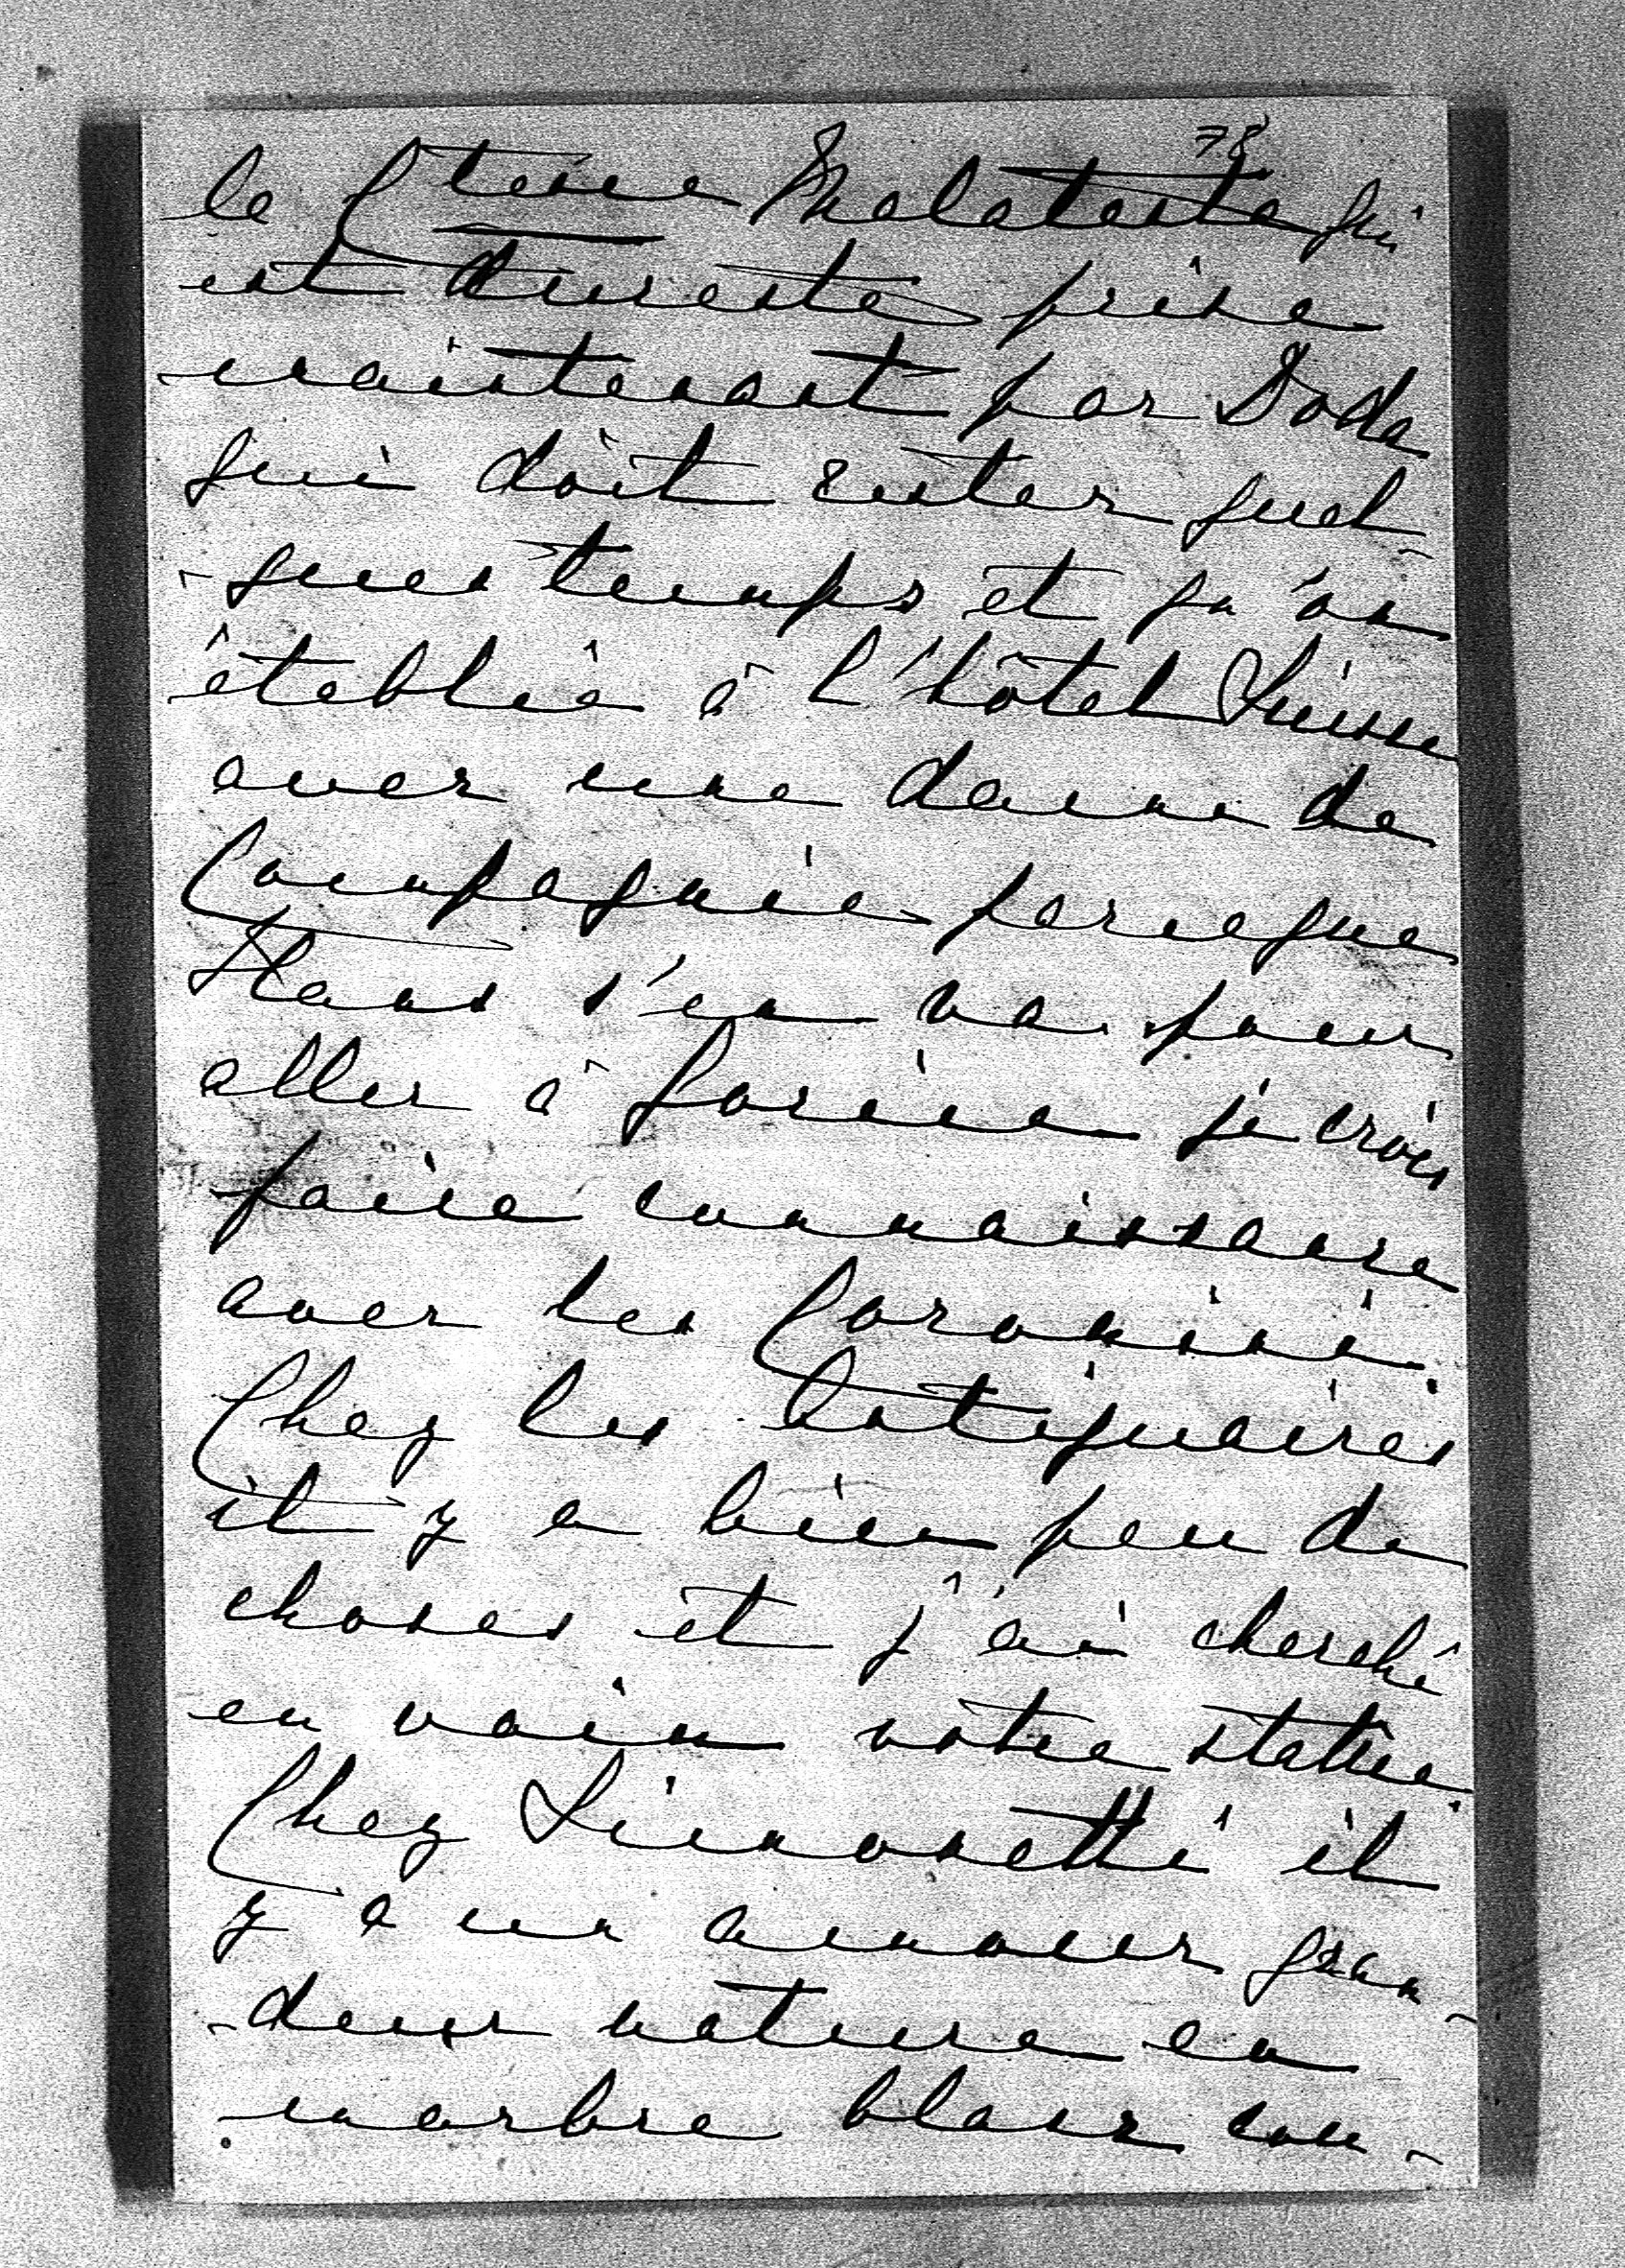 78
la Ctesse Malatesta qui
est dureste prise
maintenant par Doda
qui doit rester quel
-ques temps et qu'on
établie à l'hôtel Suisse
avec une dame de
Compagnie parceque
Hans s'en va pour
aller à Gorice je crois
faire connaissance
avec les Coronini.
Chez les antiquaires
il y a bien peu de
choses et j'ai cherché
en vain votre statue.
Chez Simonetti il
y a un amour gran-
-deur nature en
marbre blanc cou-